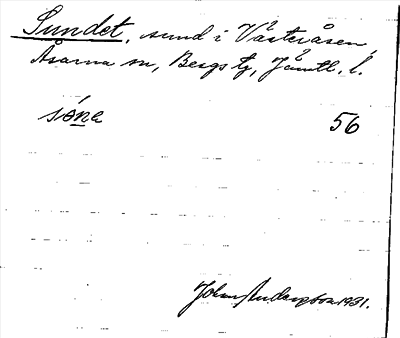 Sundet, sund i Västeråsen,
Åsarna sn, Bergs tg, Jämtl. l.
söne 56
John Anderzon 1931.